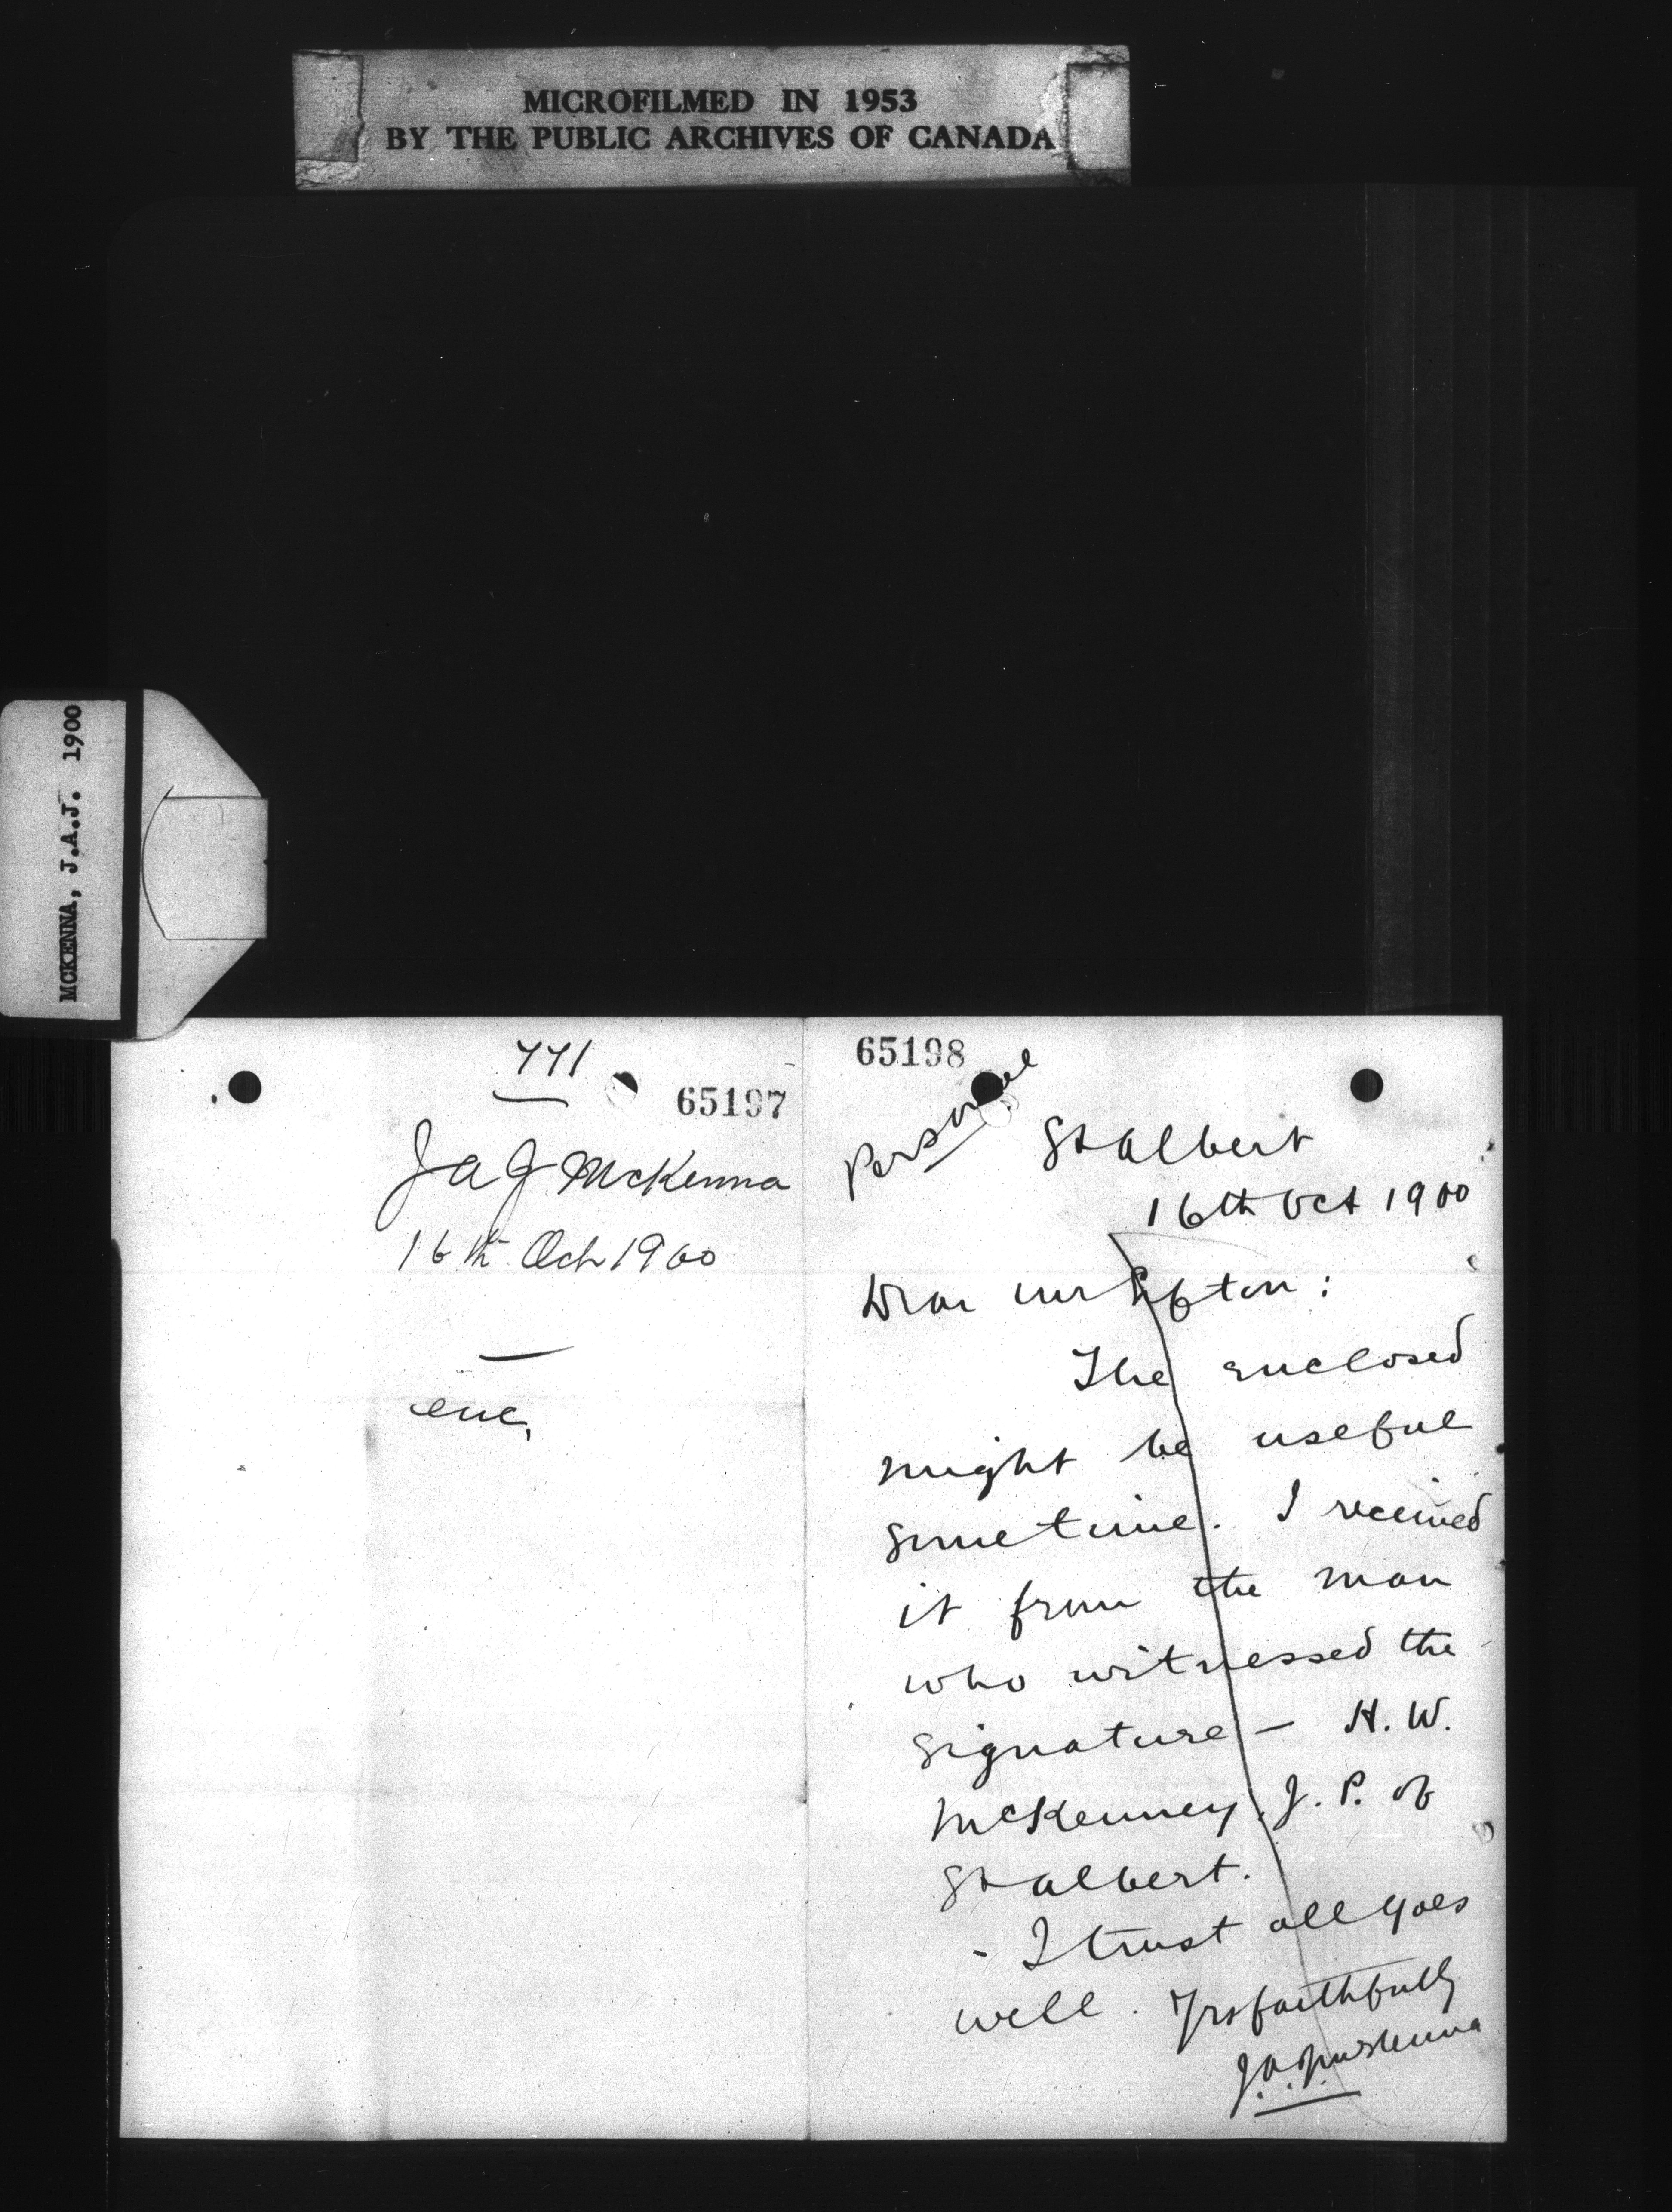 MICROFILMED IN 1953
BY THE PUBLIC ARCHIVES OF CANADA
MCKENNA, J.A.J. 1900
771
65197
J A J McKenna
16th Oct 1900
enc,
65198
Personal
St Albert
16th Oct 1900
Dear Mr
The enclosed
might be useful
sometime. I received
it from the man
who witnessed the
signature — H. W.
McKenney, J. P. of
St Albert.
- I trust all goes
well. Yrs faithfully
J.A.J. McKenna